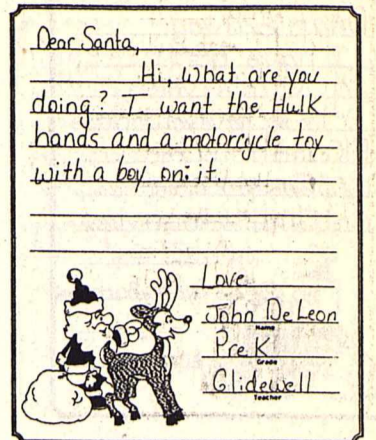 Dear Santa,
Hi, what are you
doing? I want the Hulk
hands and a motorcycle toy
with a boy on it.
Love
John De Leon
Name
Pre K
Grade
Glidewell
Teacher